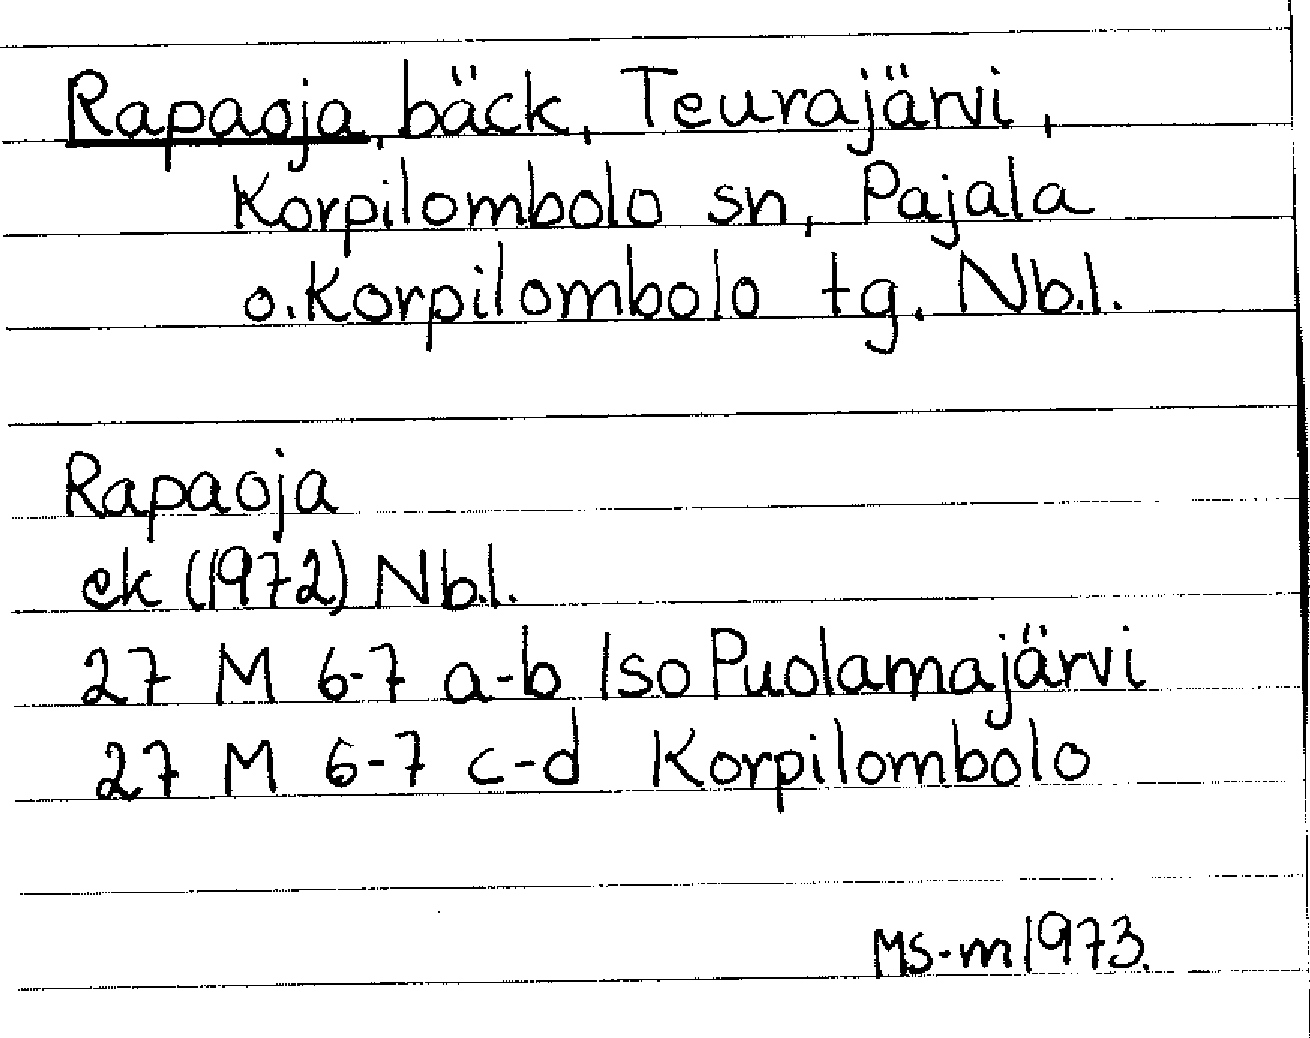 Rapaoja, bäck, Teurajärvi,
Korpilombolo sn, Pajala
o. Korpilombolo tg. Nb.l.
Rapaoja
ek (1972) Nb.l.
27 M 6-7 a-b Iso Puolamajärvi
27 M 6-7 c-d Korpilombolo
MS-m 1973.